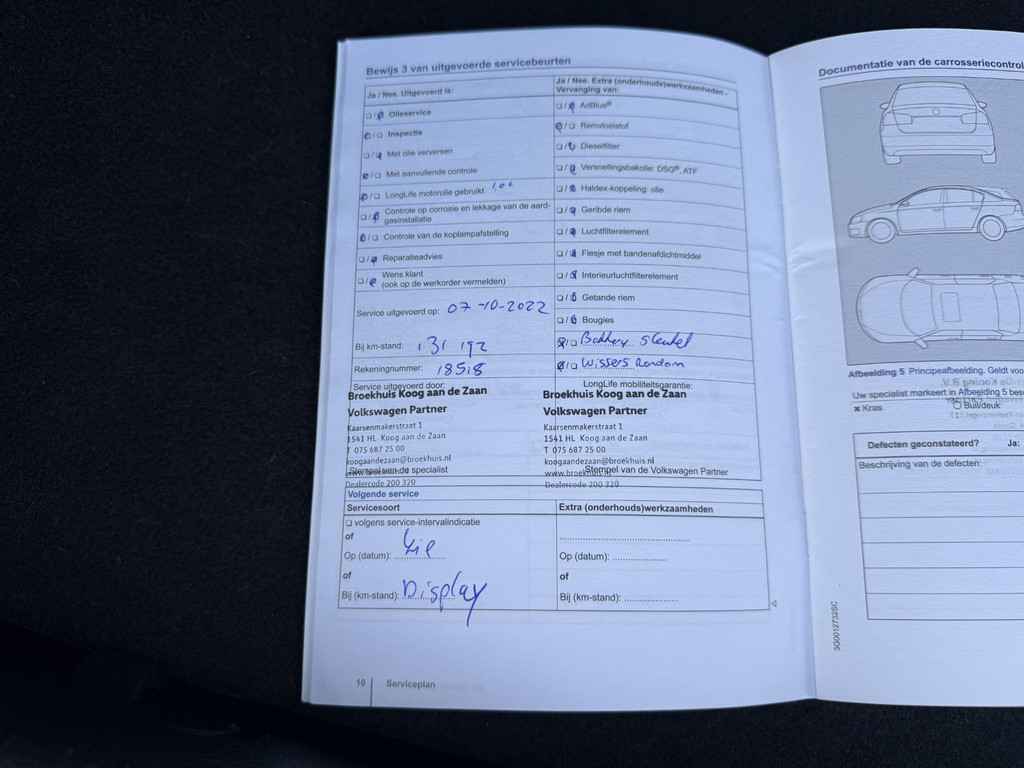 Bewijs 3 van uitgevoerde servicebeurten
Ja / Nee. Uitgevoerd is:
☐/☐ Olieservice
☐/☐ Inspectie
☐/☐ Met olie verversen
☐/☐ Met aanvullende controle
☐/☐ LongLife motorolie gebruikt
☐/☐ Controle op corrosie en lekkage van de aard-
gasinstallatie
☐/☐ Controle van de koplampafstelling
☐/☐ Reparatieadvies
☐/☐ Wens klant
(ook op de werkorder vermelden)
Service uitgevoerd op: 07-10-2022
Bij km-stand: 131 192
Rekeningnummer: 18518
Service uitgevoerd door:
Broekhuis Koog aan de Zaan
Volkswagen Partner
Kaarsenmakerstraat 1
1541 HL Koog aan de Zaan
T 075 687 25 00
koogaandezaan@broekhuis.nl
www.broekhuis.nl
Stempel van de specialist
Dealercode 200 320
Ja / Nee. Extra (onderhouds)werkzaamheden -
Vervanging van:
☐/☐ AdBlue®
☐/☐ Remvloeistof
☐/☐ Dieselfilter
☐/☐ Versnellingsbakolie: DSG®, ATF
☐/☐ Haldex-koppeling: olie
☐/☐ Geribde riem
☐/☐ Luchtfilterelement
☐/☐ Flesje met bandenafdichtmiddel
☐/☐ Interieurluchtfilterelement
☐/☐ Getande riem
☐/☐ Bougies
☐/☐ Battery Sleutel
☐/☐ Wissers Rondom
LongLife mobiliteitsgarantie:
Broekhuis Koog aan de Zaan
Volkswagen Partner
Kaarsenmakerstraat 1
1541 HL Koog aan de Zaan
T 075 687 25 00
koogaandezaan@broekhuis.nl
www.broekhuis.nl
Stempel van de Volkswagen Partner
Dealercode 200 320
Volgende service
Servicesoort
☐ volgens service-intervalindicatie
of
Op (datum): Zie
of
Bij (km-stand): Display
Extra (onderhouds)werkzaamheden
Op (datum):
of
Bij (km-stand):
10 Serviceplan
Documentatie van de carrosseriecontrol
Afbeelding 5 Principeafbeelding. Geldt voo
Uw specialist markeert in Afbeelding 5 besc
× Kras
○ Buil/deuk
Defecten geconstateerd? Ja:
Beschrijving van de defecten:
5G0012732SC